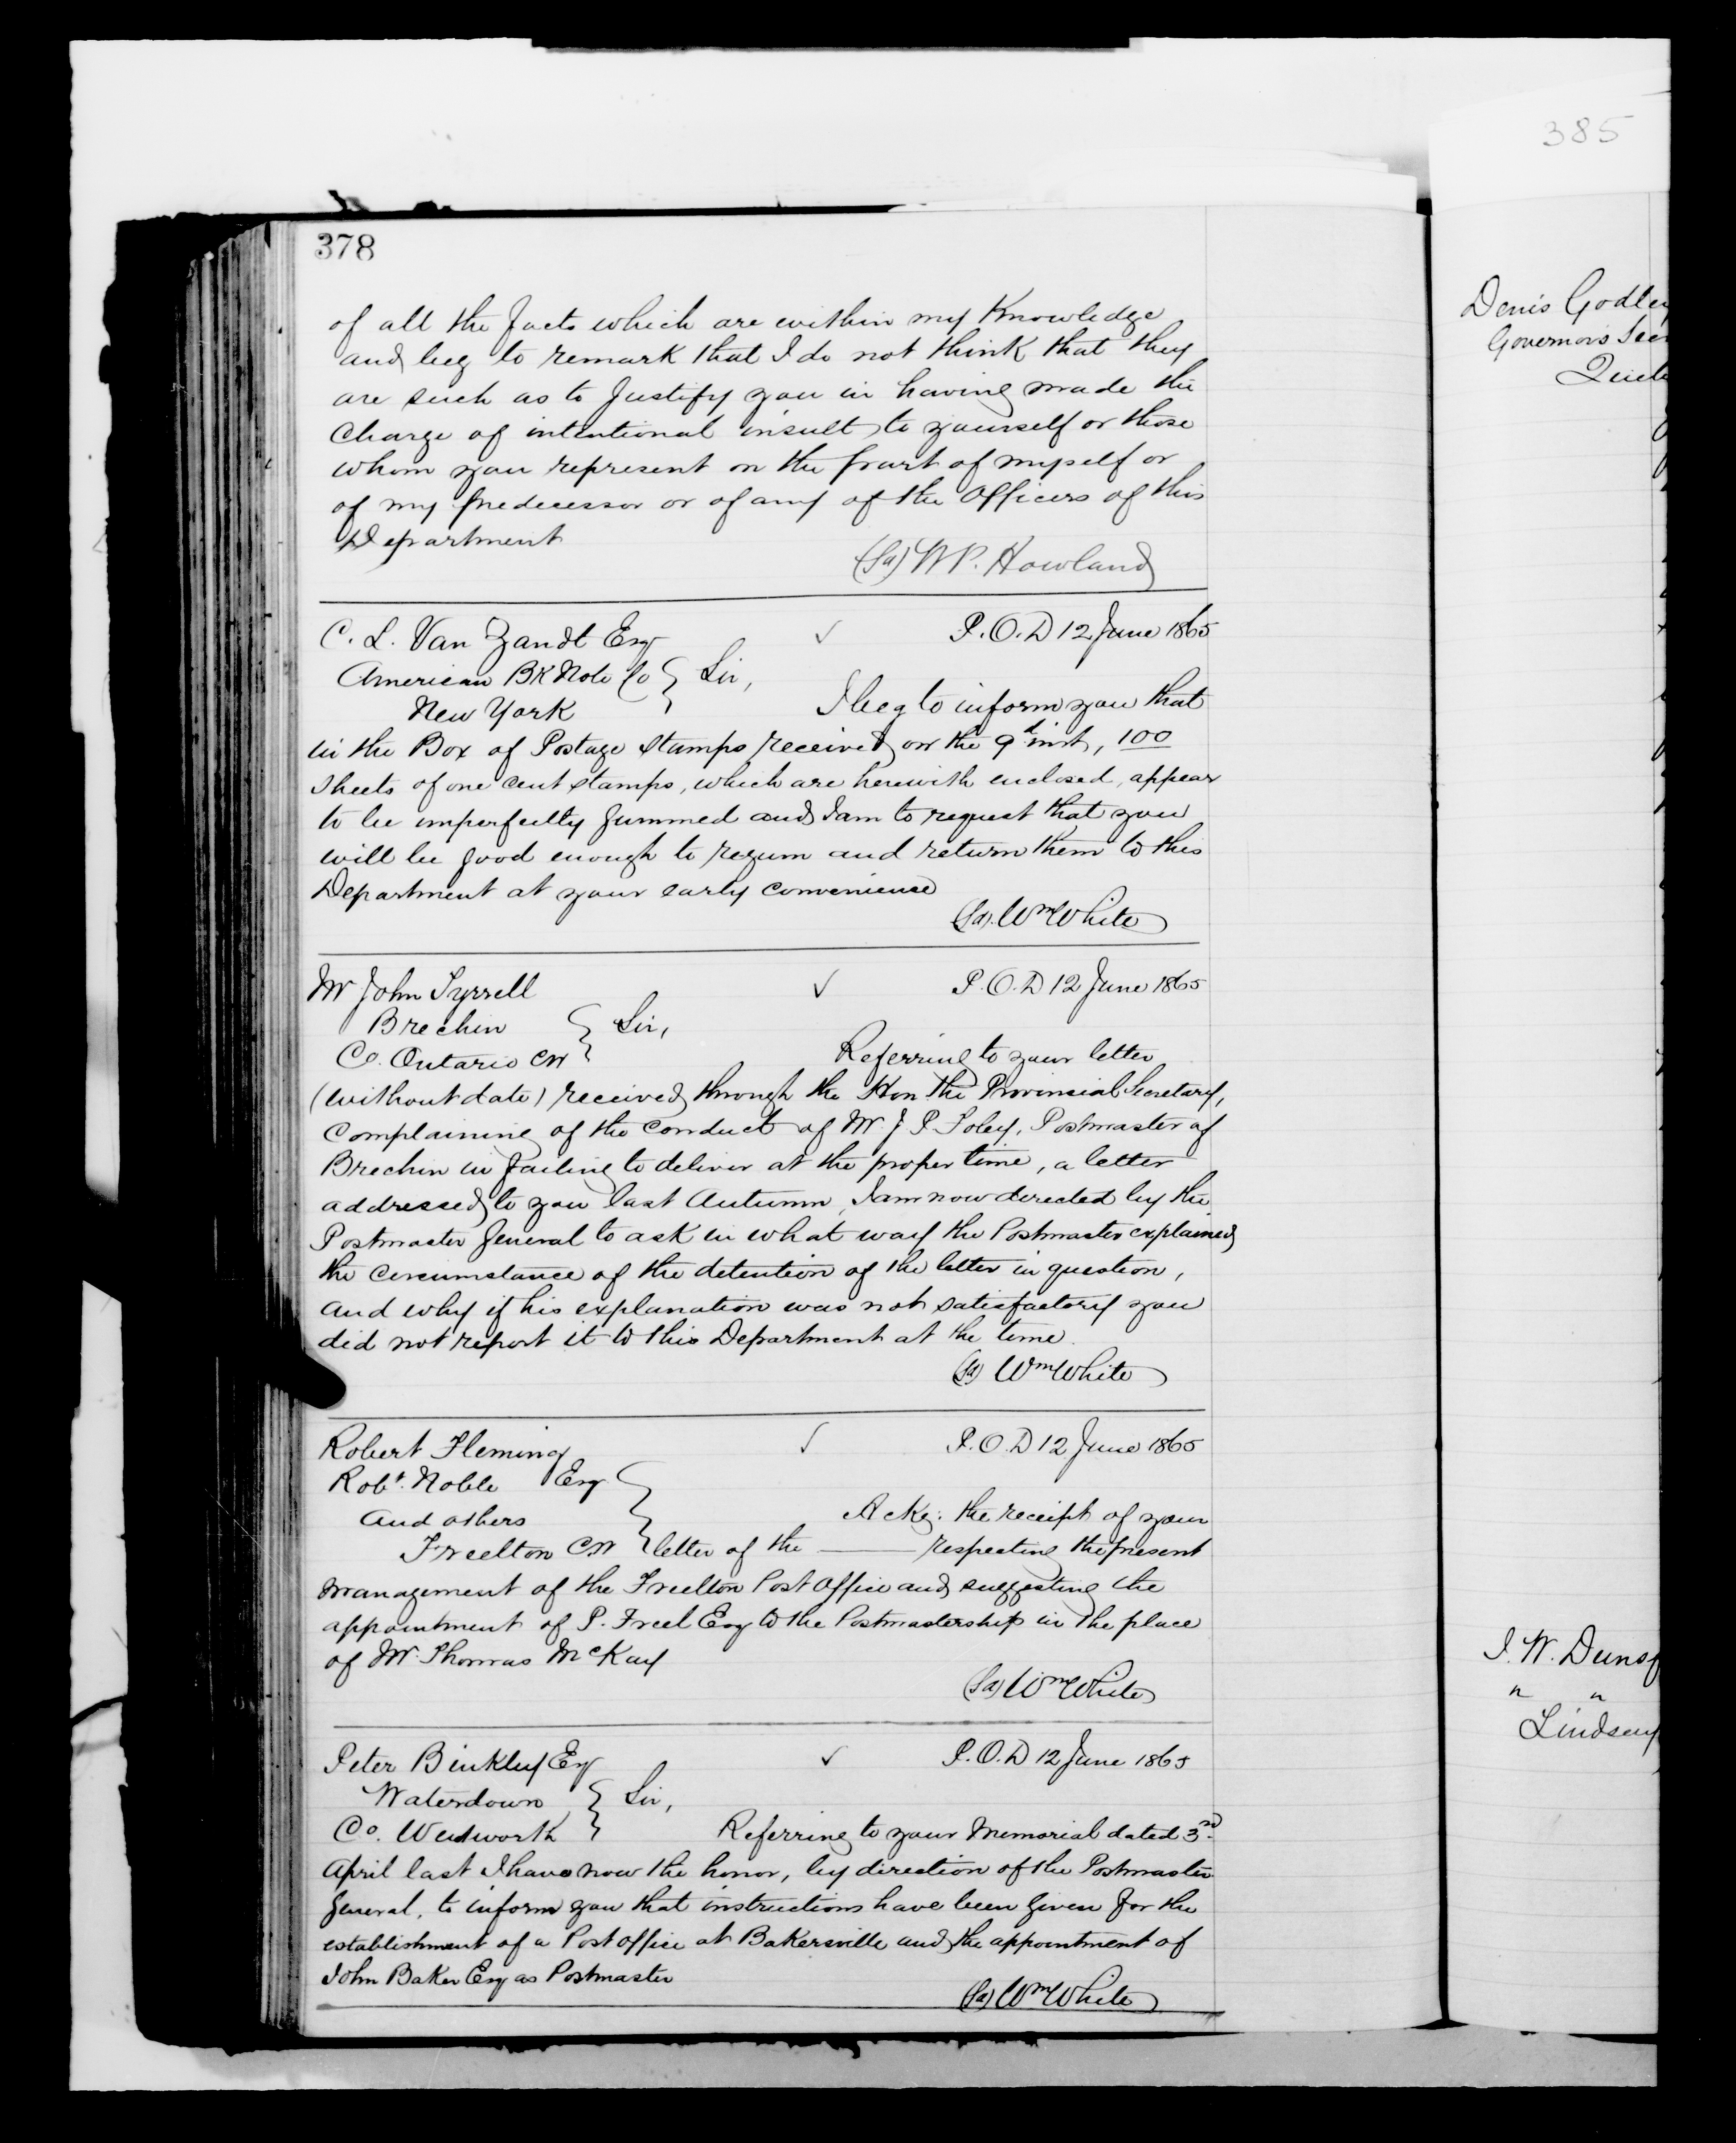 385
378
of all the facts which are within my Knowledge
and beg to remark that I do not think that they
are such as to Justify you in having made the
Charge of intentional insult to yourself or those
whom you represent on the part of myself or
of my predecessor or of any of the Officers of this
Department
(Sd) W P. Howland
C. L. Van Zandt Esq ✓ P.O.D 12 June 1865
American Bk Note Co } Sir,
New York I beg to inform you that
in the Box of Postage Stamps received on the 9th inst, 100
sheets of one cent stamps, which are herewith enclosed, appear
to be imperfectly gummed and I am to request that you
will be good enough to regum and return them to this
Department at your early convenience
(Sd). Wm White
Mr John Tyrrell ✓ P.O.D 12 June 1865
Brechin } Sir,
Co. Ontario CW Referring to your letter
(without date) received through the Hon the Provincial Secretary,
Complaining of the conduct of Mr J P Foley, Postmaster of
Brechin in failing to deliver at the proper time, a letter
addressed to you last Autumn, I am now directed by the
Postmaster General to ask in what way the Postmaster explained
the circumstance of the detention of the letter in question,
and why if his explanation was not satisfactory you
did not report it to this Department at the time.
(Sd) Wm White
Robert Fleming ✓ P.O.D 12 June 1865
Robt. Noble Esq }
and others Ackg: the receipt of your
Freelton CW letter of the —— respecting the present
management of the Freelton Post Office and suggesting the
appointment of P. Freel Esq to the Postmastership in the place
of Mr. Thomas McKay
(Sd) Wm White
Peter Binkley Esq ✓ P.O.D 12 June 1865
Waterdown } Sir,
Co. Wentworth Referring to your Memorial dated 3rd
April last I have now the honor, by direction of the Postmaster
General, to inform you that instructions have been given for the
establishment of a Post Office at Bakersville and the appointment of
John Baker Esq as Postmaster
(Sd) Wm White
Denis Godley
Governors Sec
Queb
J. W. Dunsf
" "
Lindsay